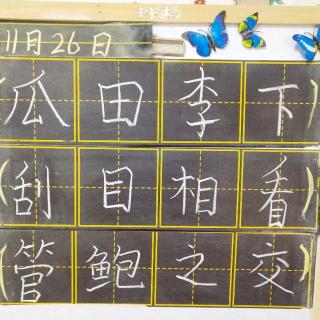 11月26日
(瓜田李下)
(刮目相看)
(管鲍之交)